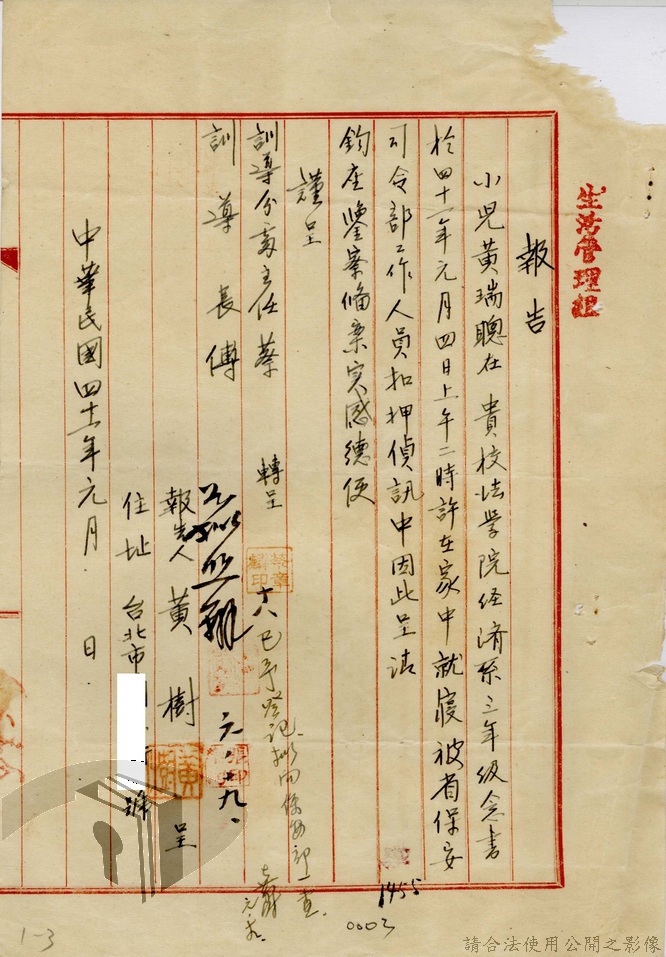 生活管理組
報告
小兒黃瑞聰在 貴校法學院经濟系三年級念書
於四十一年元月四日上午二時許在家中就寢被省保安
司令部工作人員扣押偵訊中因此呈請
鈞座鑒察備案实感德便
謹呈
訓導分處主任蔡 轉呈
訓導長傅
已予登記擬向保安部一查
報告人 黃樹 呈
住址 台北市 號
中華民國四十一年元月 日
1455
0003
1-3
請合法使用公開之影像